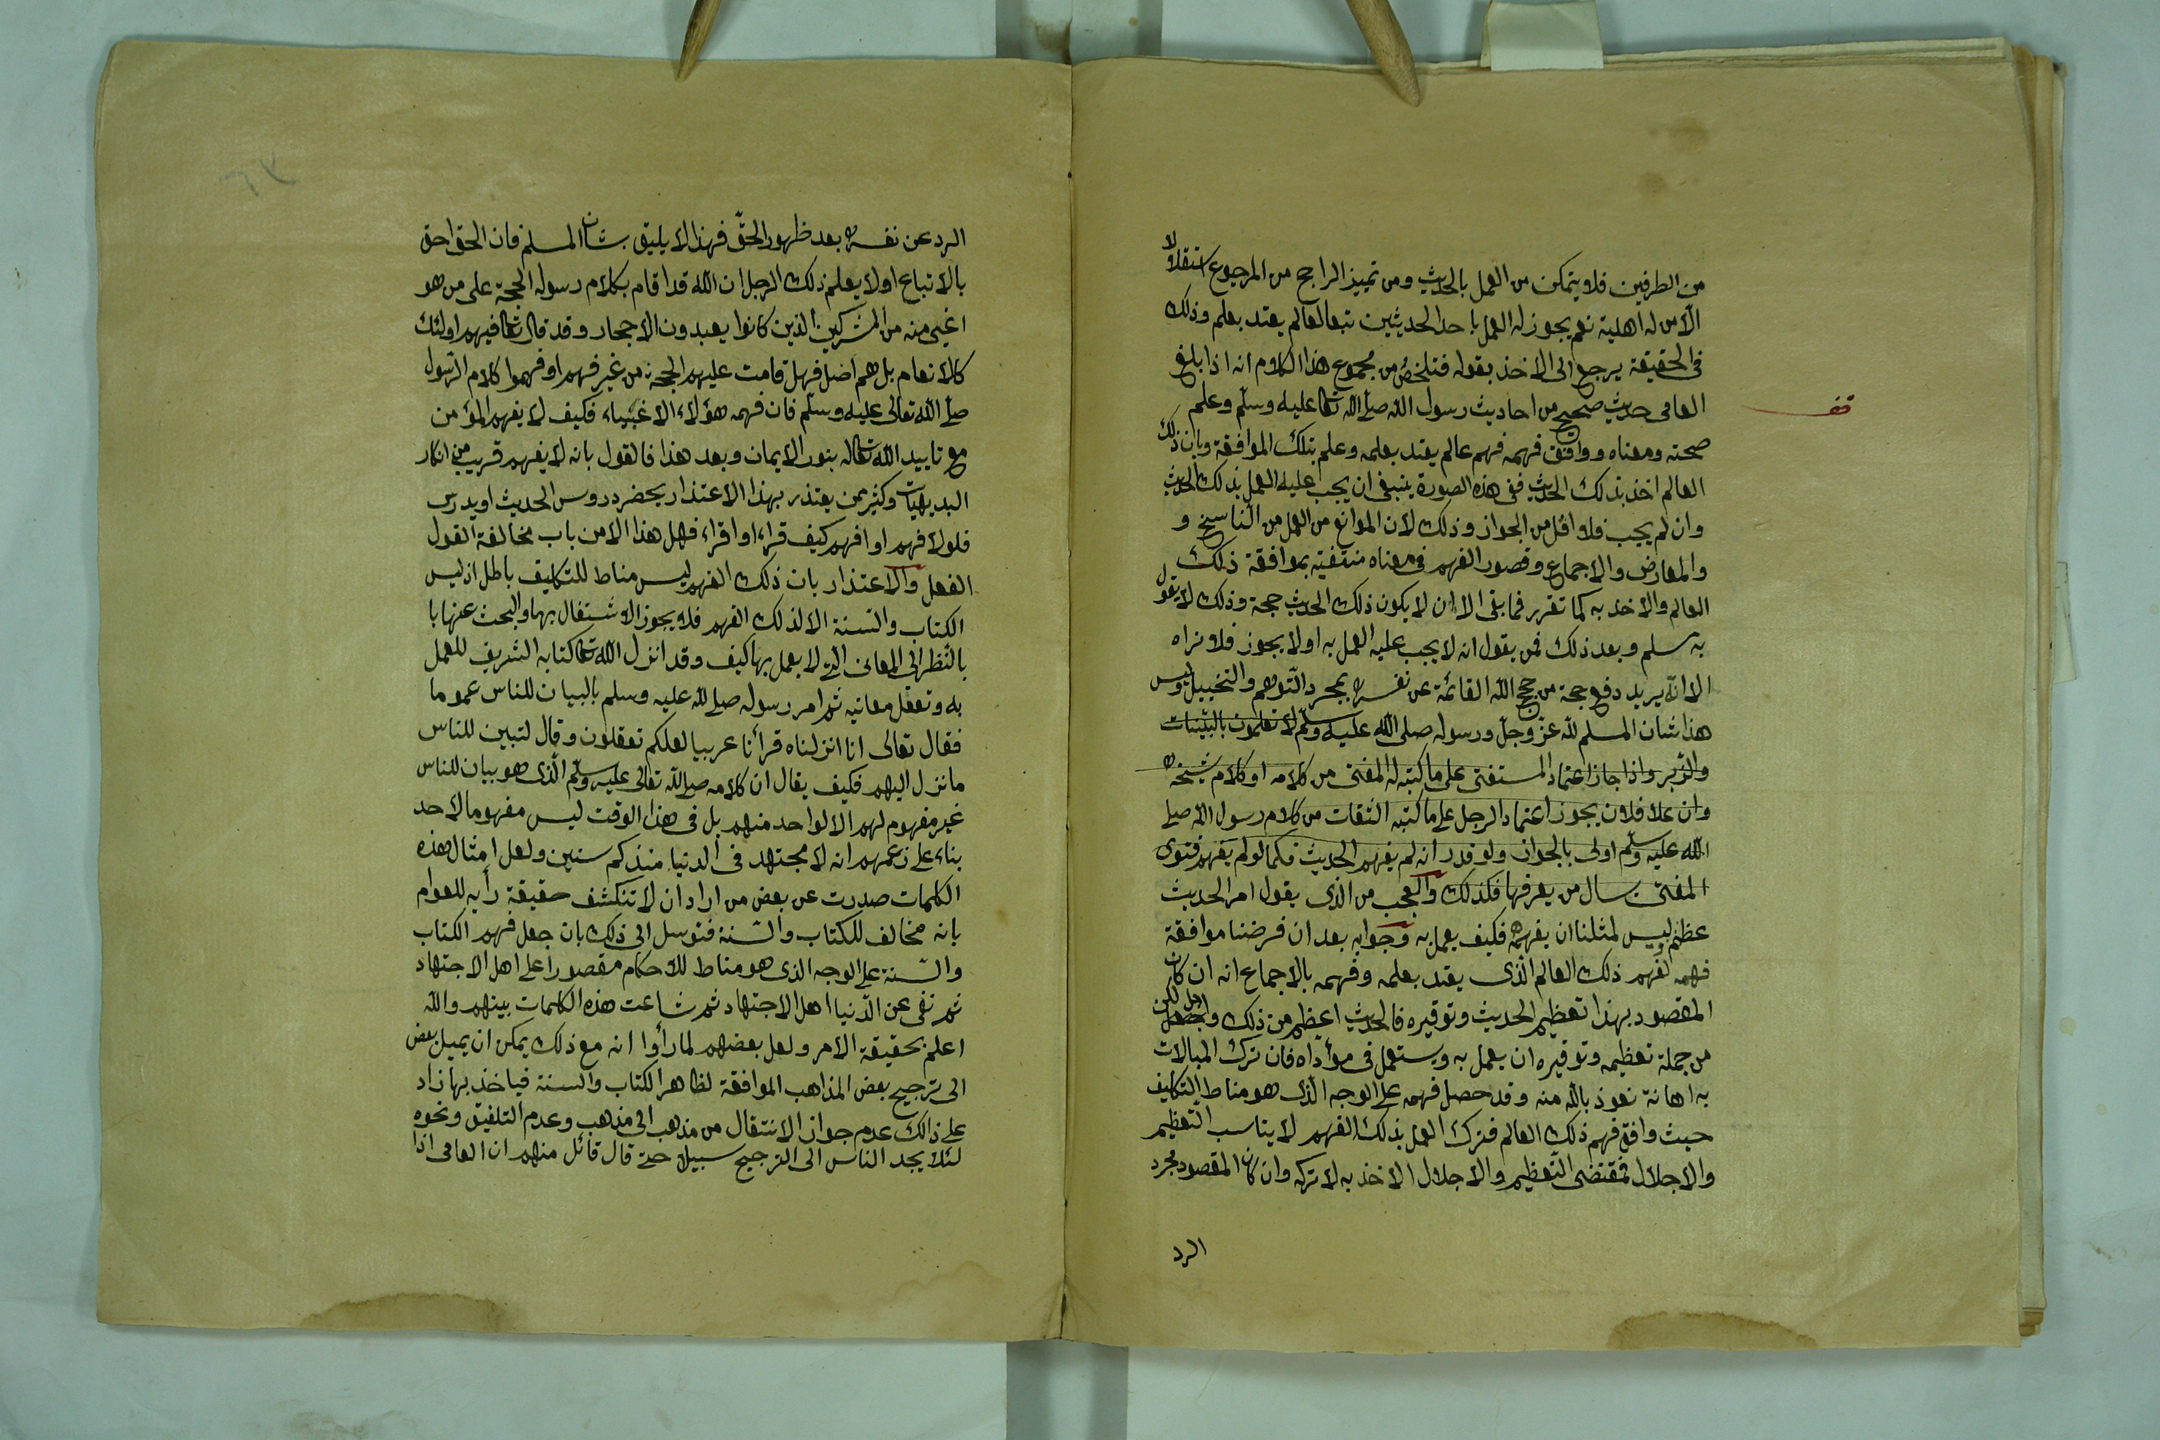 من الطرفين فلا يتمكن من العمل بالحديث ومن تمييز الراجح من المرجوع استقلالا
الا من له اهلية نعم يجوز له العمل باحد الحديثين تبعا لعالم يعتد بعلمه وذلك
فى الحقيقة يرجع الى الاخذ بقوله فتلخص من مجموع هذا الكلام انه اذا بلغ
قف
العامى حديث صحيح من احاديث رسول الله صلى الله تعا عليه وسلم وعلم
صحته ومعناه ووافق فهمه فهم عالم يعتد بعلمه وعلم بتلك الموافقة وبان ذلك
العالم اخذ بذلك الحديث ففى هذه الصورة ينبغى ان يجب عليه العمل بذلك الحديث
وان لم يجب فلا اقل من الجواز وذلك لان الموانع من العمل من الناسخ و
والمعارض والاجماع وقصور الفهم فى معناه منتفية بموافقة ذلك
العالم والاخذ به كما تقرر فما بقى الا ان لا يكون ذلك الحديث حجة وذلك لا يقول
به مسلم وبعد ذلك فمن يقول انه لا يجب عليه العمل به اولا يجوز فلا نراه
الا انه يريد دفع حجة من حجج الله القائمة عن نفسه بمجرد التوهم والتخييل وليس
هذا شان المسلم لله عز وجل ورسوله صلى الله عليه وسلم لا تعلمون بالبينات
والزبر واذا جاز اعتماد المستفتى على ما كتبه له المفتى من كلامه او كلام شيخه
وان علا فلان يجوز اعتماد الرجل على ما كتبه الثقات من كلام رسول الله صلى
الله عليه وسلم اولى بالجواز ولو قدر انه لم يفهم الحديث فكما لو لم يفهم فتوى
المفتى سال من يعرفها فكذلك والعجب من الذى يقول امر الحديث
عظيم وليس لمثلنا ان يفهمه فكيف يعمل به وجوابه بعد ان فرضنا موافقة
فهمه لفهم ذلك العالم الذى يعتد بعلمه وفهمه بالاجماع انه ان كان
المقصود بهذا تعظيم الحديث وتوقيره فالحديث اعظم من ذلك واجل لكن
من جملة تعظيمه وتوقيره ان يعمل به ويستعمل فى مواداه فان ترك المبالات
به اهانة نعوذ بالله منه وقد حصل فهمه على الوجه الذى هو مناط التكليف
حيث وافق فهم ذلك العالم فترك العمل بذلك الفهم لا يناسب التعظيم
والاجلال فمقتضى التعظيم والاجلال الاخذ به لا تركه وان كان المقصود مجرد
الرد
الرد عن نفسه بعد ظهور الحق فهذا لا يليق بشان المسلم فان الحق احق
بالاتباع اولا يعلم ذلك الرجل ان الله قد اقام بكلام رسوله الحجة على من هو
اغبى منه من المشركين الذين كانوا يعبدون الاحجار وقد قال تعا فيهم اولئك
كالانعام بل هم اضل فهل قامت عليهم الحجة من غير فهم او فهموا كلام الرسول
صلى الله تعالى عليه وسلم فان فهمه هؤلاء الاغبياء فكيف لا يفهم المؤمن
مع تاييد الله تعا له بنور الايمان وبعد هذا فالقول بانه لا يفهم قريب من انكار
البديهيات وكثير ممن يعتذر بهذا الاعتذار يحضر دروس الحديث او يدرس
فلولا فهم او افهم كيف قراء او اقراء فهل هذا الا من باب مخالفة القول
الفعل والاعتذار بان ذلك الفهم ليس مناط للتكليف باطل اذ ليس
الكتاب والسنة الا لذلك الفهم فلا يجوز الاشتغال بها والبحث عنها با
بالنظر الى المعانى التى لا يعمل بها كيف وقد انزل الله تعا كتابه الشريف للعمل
به وتعقل معانيه ثم امر رسوله صلى لله عليه وسلم بالبيان للناس عموما
فقال تعالى انا انزلناه قرأنا عربيا لعلكم تعقلون وقال لتبين للناس
ما نزل اليهم فكيف يقال ان كلامه صلى الله تعالى عليه وسلم الذى هو بيان للناس
غير مفهوم لهم الا لواحد منهم بل فى هذا الوقت ليس مفهوما لاحد
بناء على زعمهم انه لا مجتهد فى الدنيا منذ كم سنين ولعل امثال هذه
الكلمات صدرت عن بعض من اراد ان لا تنكشف حقيقة رأيه للعوام
بانه مخالف للكتاب والسنة فتوسل الى ذلك بان جعل فهم الكتاب
والسنة على الوجه الذى هو مناط للاحكام مقصورا على اهل الاجتهاد
ثم نفى عن الدنيا اهل الاجتهاد ثم شاعت هذه الكلمات بينهم والله
اعلم بحقيقة الامر ولعل بعضهم لما رأوا انه مع ذلك يمكن ان يميل بعض
الى ترجيح بعض المذاهب الموافقة لظاهر الكتاب والسنة فياخذ بها زاد
على ذالك عدم جواز الانتقال من مذهب الى مذهب وعدم التلفيق ونحوه
لئلا يجد الناس الى الترجيح سبيلا حتى قال قائل منهم ان العامى اذا